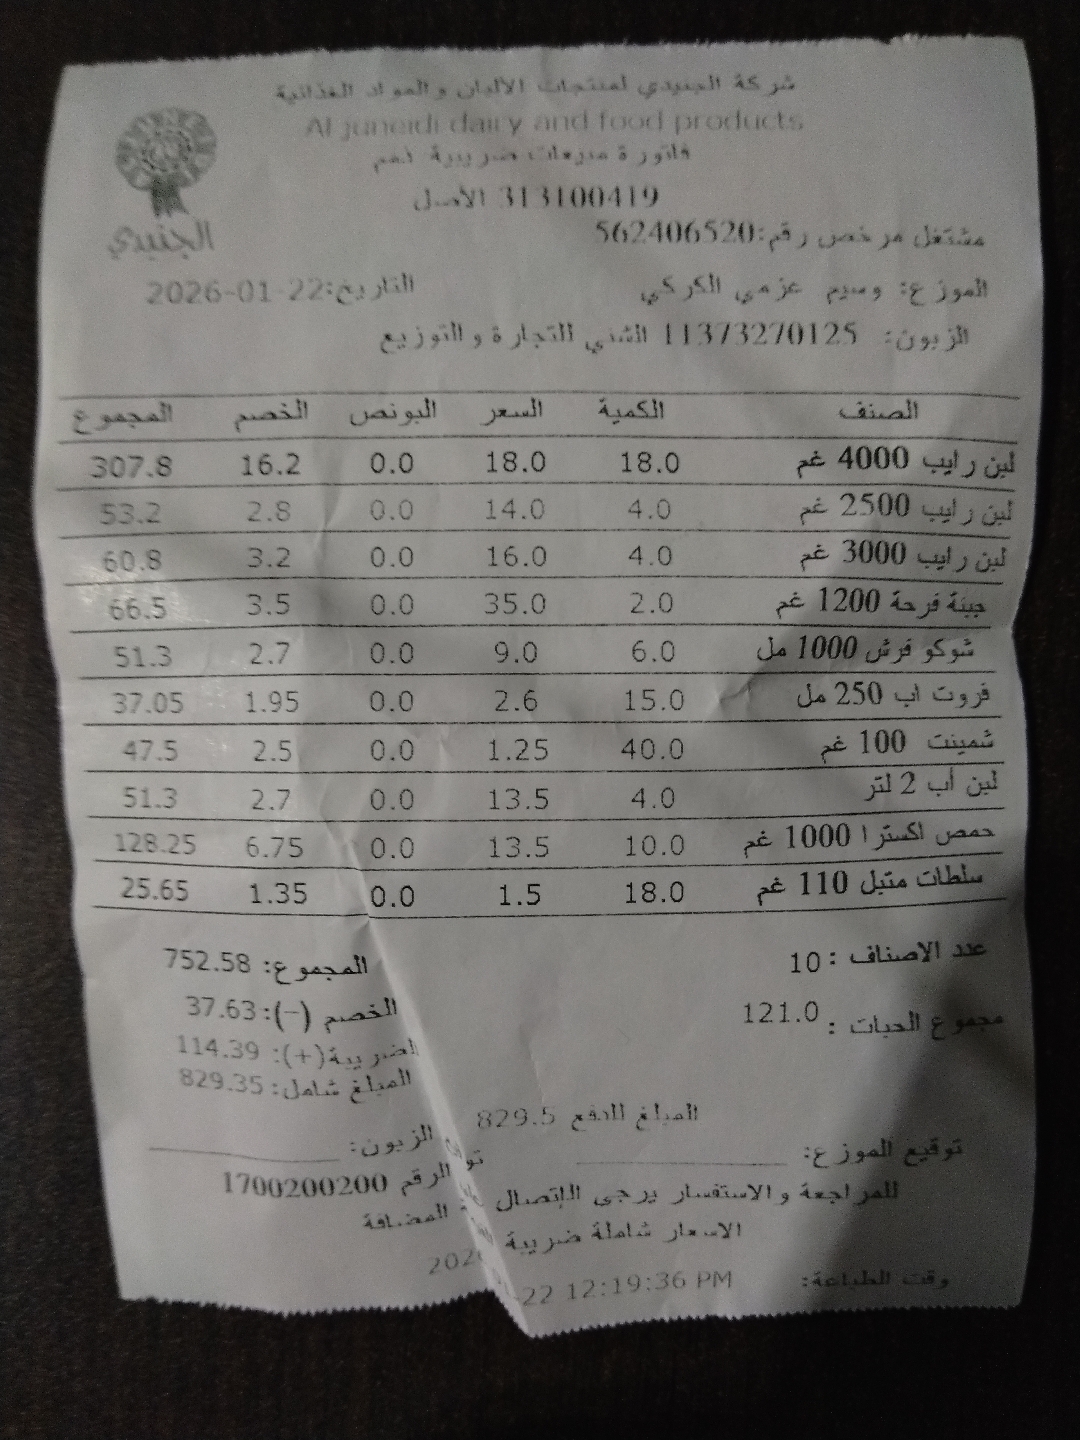 شركة الجنيدي لمنتجات الألبان والمواد الغذائية
Al juneidi dairy and food products
فاتورة مبيعات ضريبية ذمم
313100419 الأصل
الجنيدي
مشتغل مرخص رقم:562406520
الموزع: وسيم عزمي الكركي التاريخ:2026-01-22
الزبون: 11373270125 الشني للتجارة والتوزيع
الصنف الكمية السعر البونص الخصم المجموع
لبن رايب 4000 غم 18.0 18.0 0.0 16.2 307.8
لبن رايب 2500 غم 4.0 14.0 0.0 2.8 53.2
لبن رايب 3000 غم 4.0 16.0 0.0 3.2 60.8
جبنة فرحة 1200 غم 2.0 35.0 0.0 3.5 66.5
شوكو فرش 1000 مل 6.0 9.0 0.0 2.7 51.3
فروت اب 250 مل 15.0 2.6 0.0 1.95 37.05
شمينت 100 غم 40.0 1.25 0.0 2.5 47.5
لبن أب 2 لتر 4.0 13.5 0.0 2.7 51.3
حمص اكسترا 1000 غم 10.0 13.5 0.0 6.75 128.25
سلطات متبل 110 غم 18.0 1.5 0.0 1.35 25.65
عدد الاصناف : 10 المجموع: 752.58
مجموع الحبات : 121.0 الخصم (-): 37.63
الضريبة(+): 114.39
المبلغ شامل: 829.35
المبلغ للدفع 829.5
توقيع الموزع: الزبون:
للمراجعة والاستفسار يرجى الإتصال الرقم 1700200200
الاسعار شاملة ضريبة المضافة
وقت الطباعة: 22 12:19:36 PM